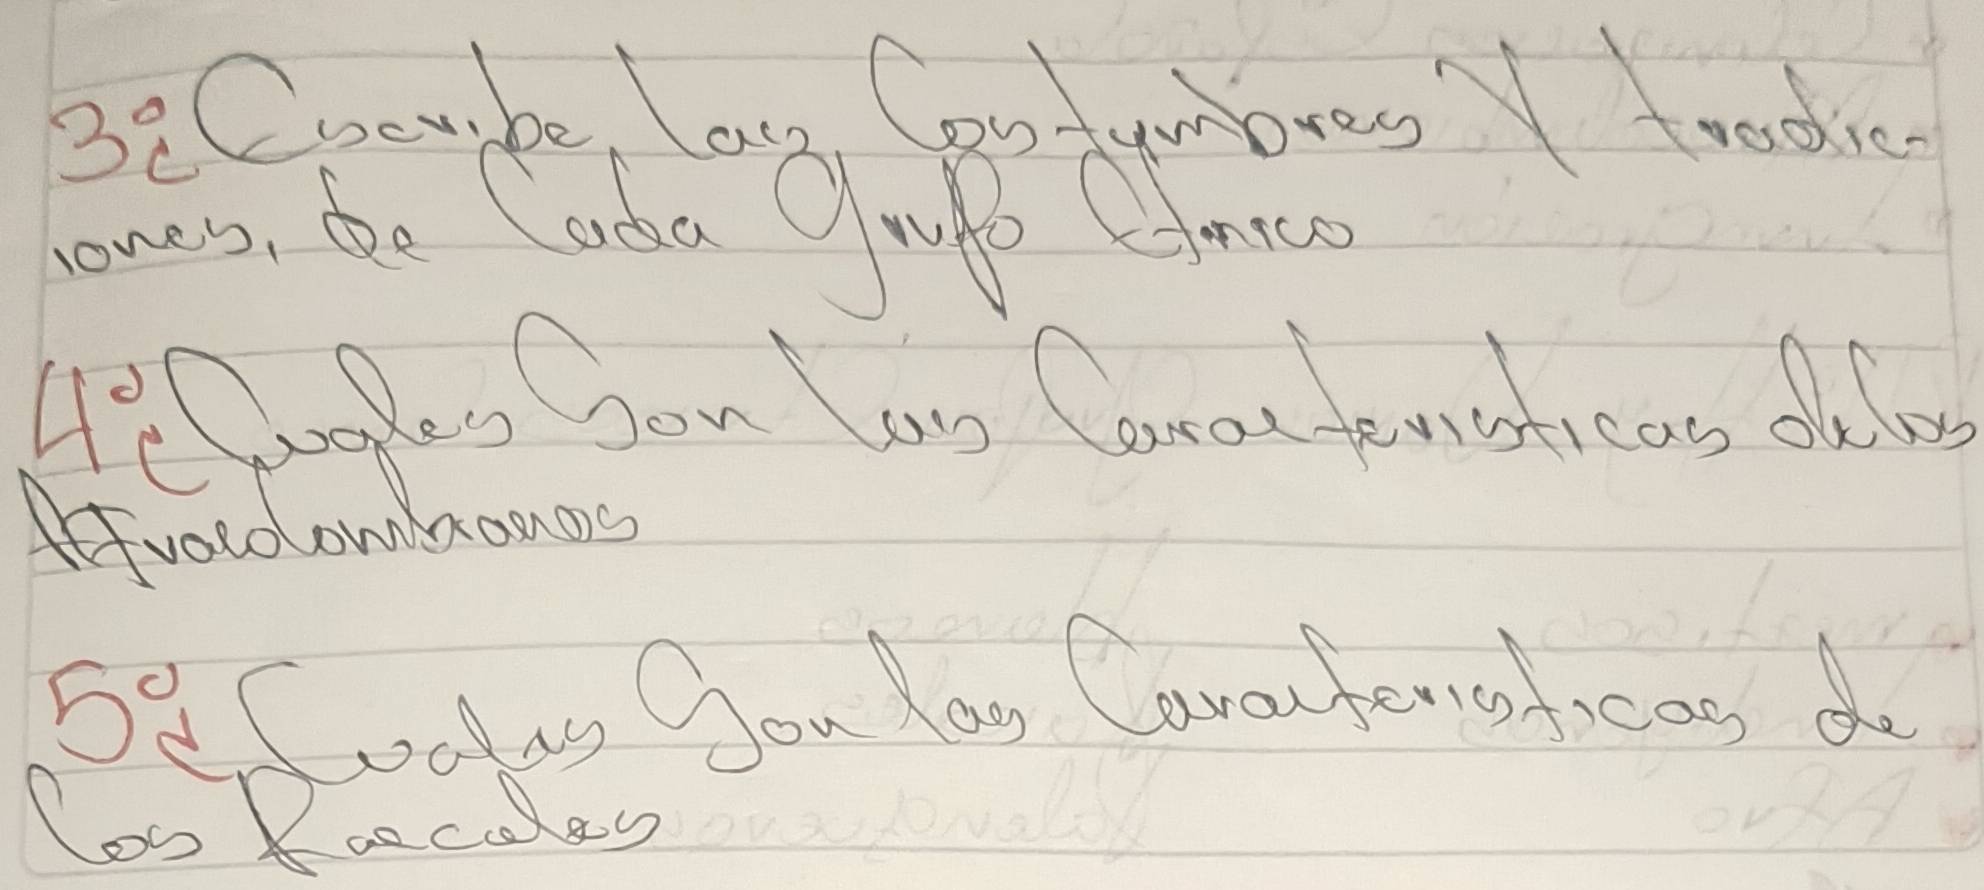 3º ¿ Escribe, las Costumbres Y tradic-
iones, de Cada grupo Etnico
4º ¿ Cuales Son las Caracteristicas de los
Afrocolombianos
5º ¿ Cuales Son las Caracteristicas de
los Raecales